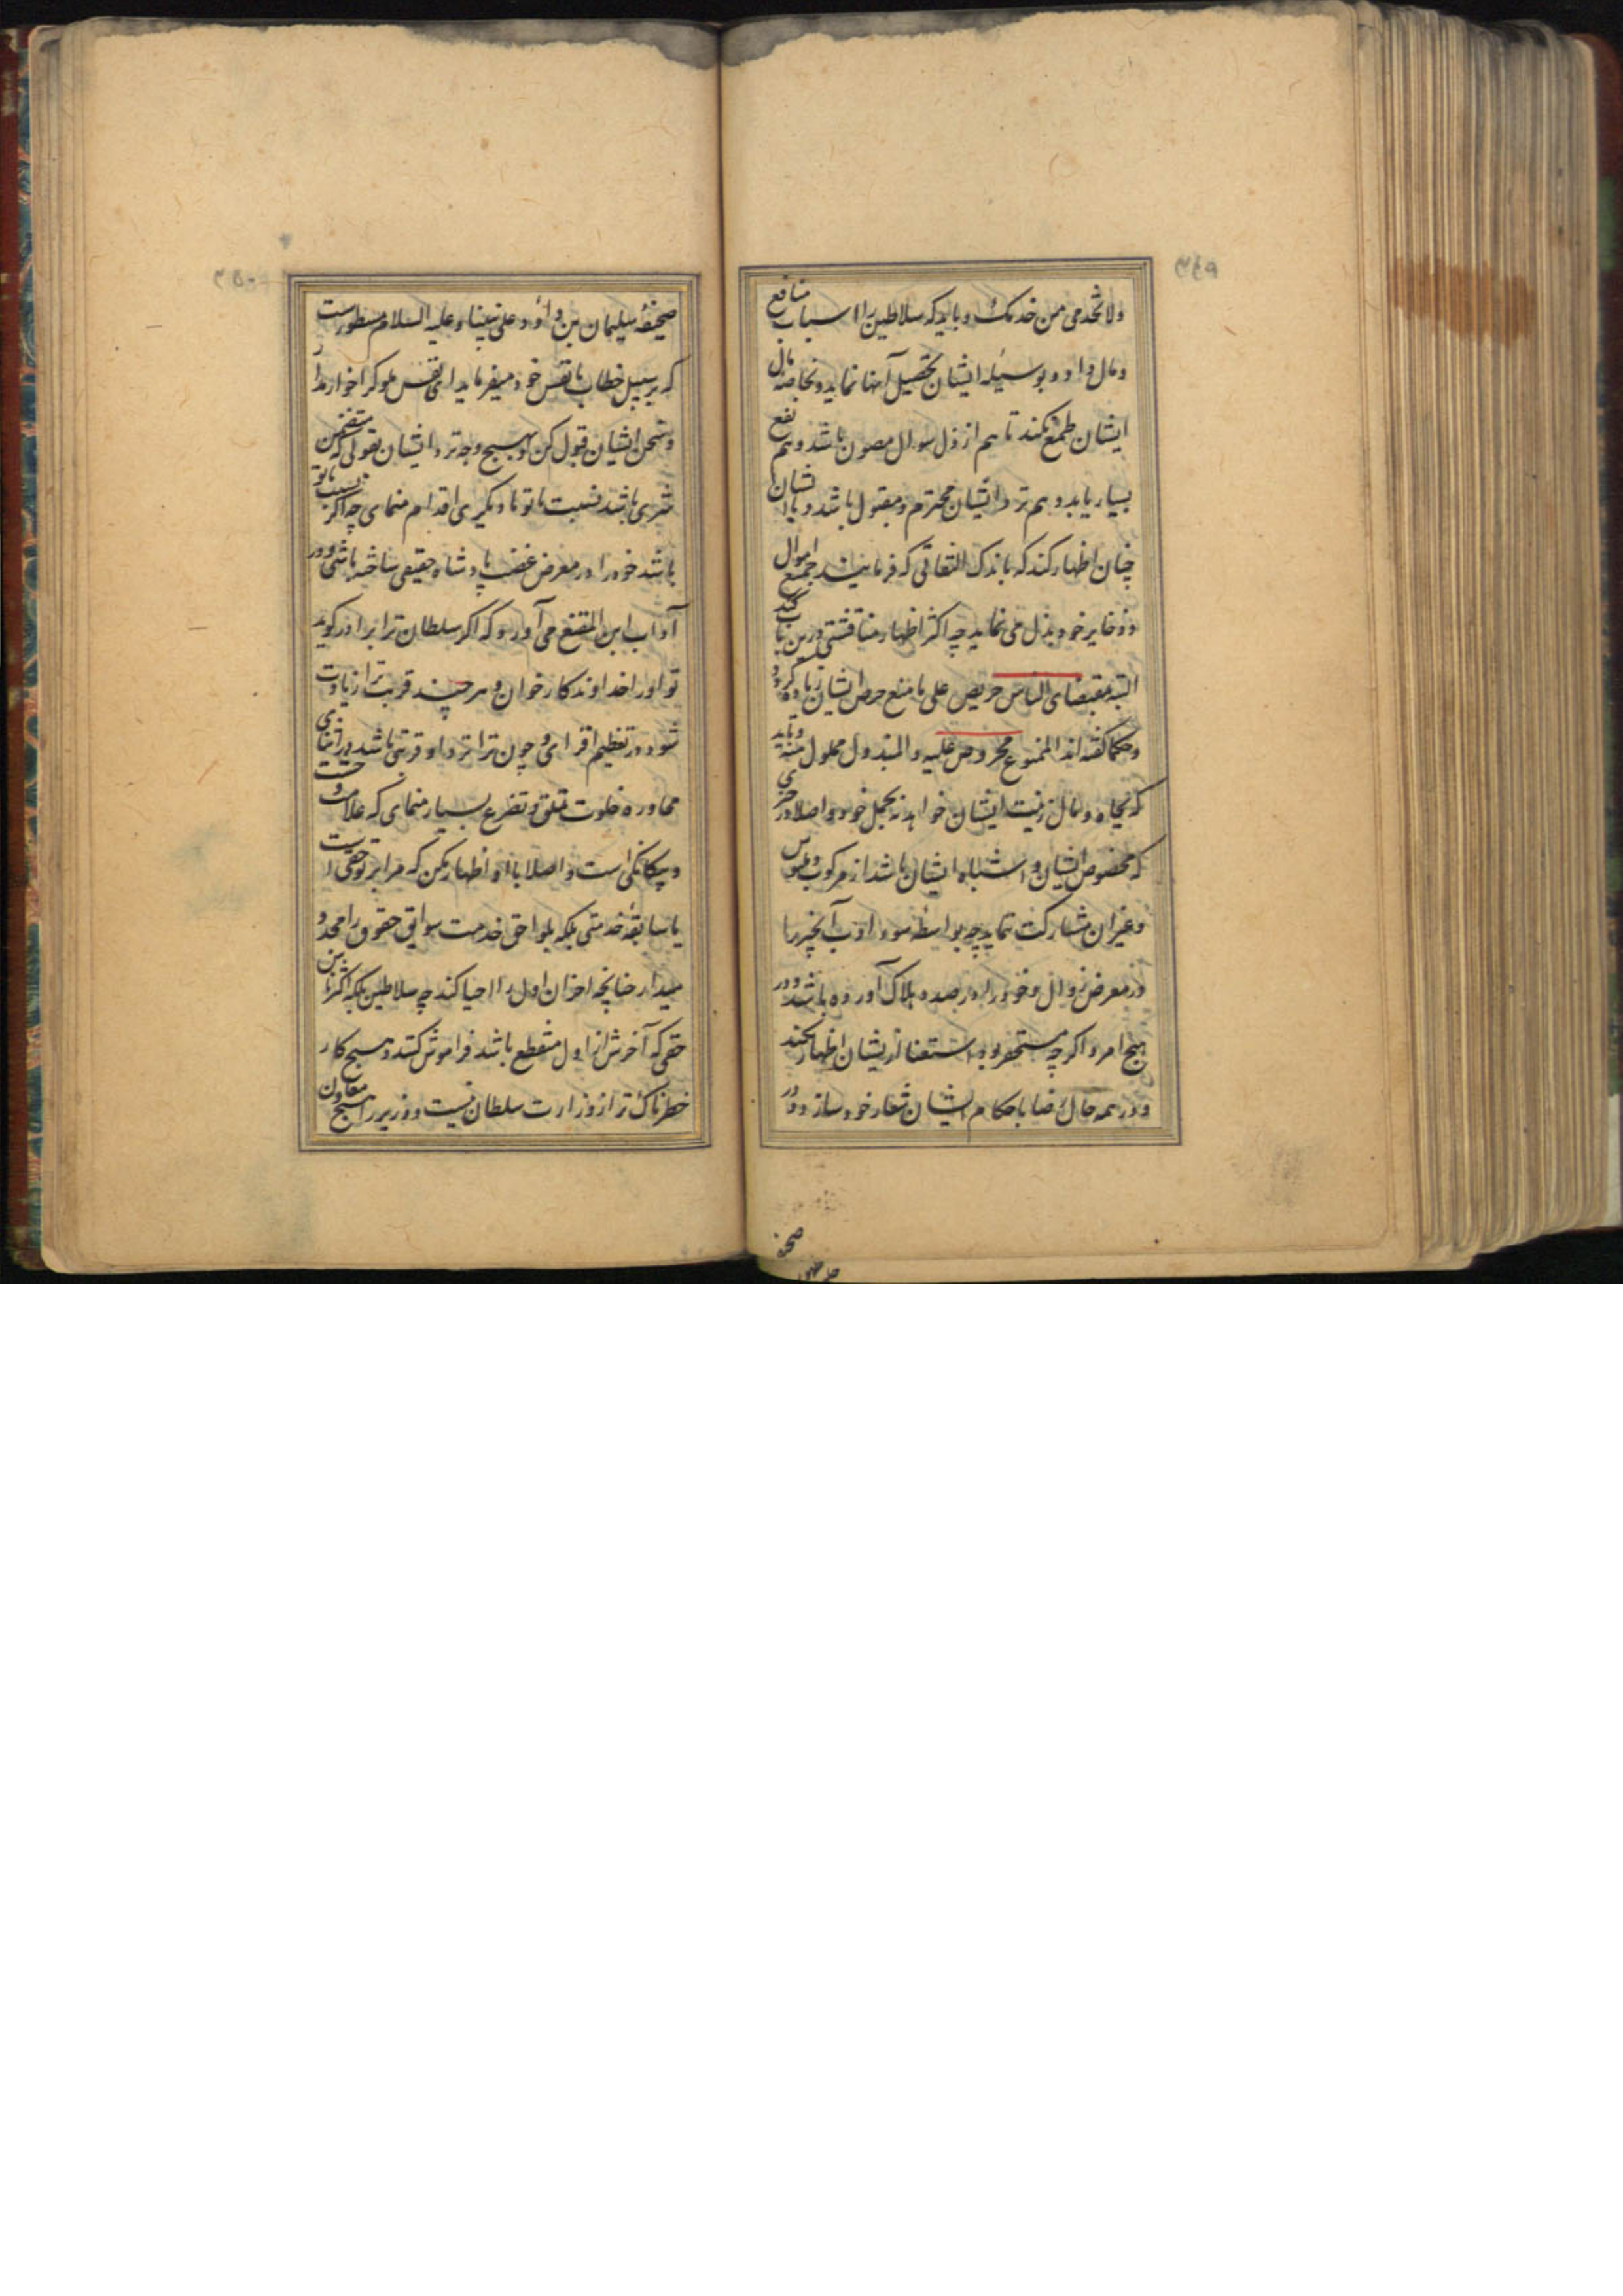 ۳۴۹
ولا تخدمی من خدمک و باید که سلاطین را اسباب منافع
و مال داده و بوسیله ایشان تحصیل آنها نماید و بخاصه مال
ایشان طمع نکند تا هم از ذل سوال مصون باشد و هم نفع
بسیار یابد و هم نزد ایشان محترم و مقبول باشد و با ایشان
چنان اظهار کند که باندک التفاتی که فرمایند جمیع اموال
و ذخایر خود بذل می نماید چه اکثر اظهار مناقشتی درین باب کند
البته بمقتضای الناس حریص علی ما منع حرص ایشان زیاده کردد
و حکما کفته اند الممنوع محروص علیه و المبذول مملول منه و باید
که بجاه و مال زینت ایشان خواهد نه تجمل خود و اصلا در چیزی
که مخصوص ایشان و اشباه ایشان باشد از مرکوب و ملبوس
و غیر آن مشارکت ننماید چه بواسطه سوء ادب آنچیز را
در معرض زوال و خود را در صدد هلاک آورده باشد و در
هیچ امر و اکر چه مستحقر بود استغنا از یشان اظهار نکند
و در همه حال رضا باحکام ایشان شعار خود سازد و در
صحیفه
۳۵۰
صحیفهٔ سلیمان بن داؤد علی نبینا و علیه السلام مسطور است
که بر سبیل خطاب با نفس خود میفرماید ای نفس ملوک را خوار مدار
و سخن ایشان قبول کن و بهیچ وجه نزد ایشان بقولی که متضمن
شری باشد نسبت با تو یا دیکری اقدام منمای چه اکر نسبت با تو
باشد خود را در معرض غضب پادشاه حقیقی ساخته باشی و در
آداب ابن المقنع می آورد که اکر سلطان ترا برادر کوید
تو او را خداوندکار خوان و هر چند قربت ترا زیادت
شود در تعظیم افزای و چون ترا نزد او قربتی باشد در اثنای
محاوره خلوت تملق و تضرع بسیار منمای که علامت وحشت
و بیکانکی است و اصلا با او اظهار مکن که مرا بر تو حقی است
یا سابقهٔ خدمتی بلکه بلواحق خدمت سوابق حقوق را مجدد
میدار چنانچه آخر آن اول را احیا کند چه سلاطین بلکه اکثر ناس
حقی که آخرش از اول منقطع باشد فراموش کنند و هیچ کار
خطرناک تر از وزارت سلطان نیست و وزیر را هیچ معاون